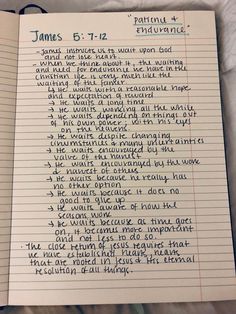 "Patience &
Endurance"
James 5:7-12
- James instructs us to wait upon God
and not lose heart.
- When we think about it, the waiting
and need for endurance we have in the
Christian life is very much like the
waiting of the farmer
↳ He waits with a reasonable hope
and expectation of reward
→ He waits a long time
→ He waits working all the while
→ He waits depending on things out
of his own power; with his eyes
on the heavens
→ He waits despite changing
circumstances & many uncertainties
→ He waits encouraged by the
value of the harvest
→ He waits encouraged by the work
& harvest of others
→ He waits because he really has
no other option
→ He waits because it does no
good to give up
→ He waits aware of how the
seasons work
→ He waits because as time goes
on, it becomes more important
and not less to do so.
- The close return of Jesus requires that
we have established hearts, hearts
that are rooted in Jesus & his eternal
resolution of all things.